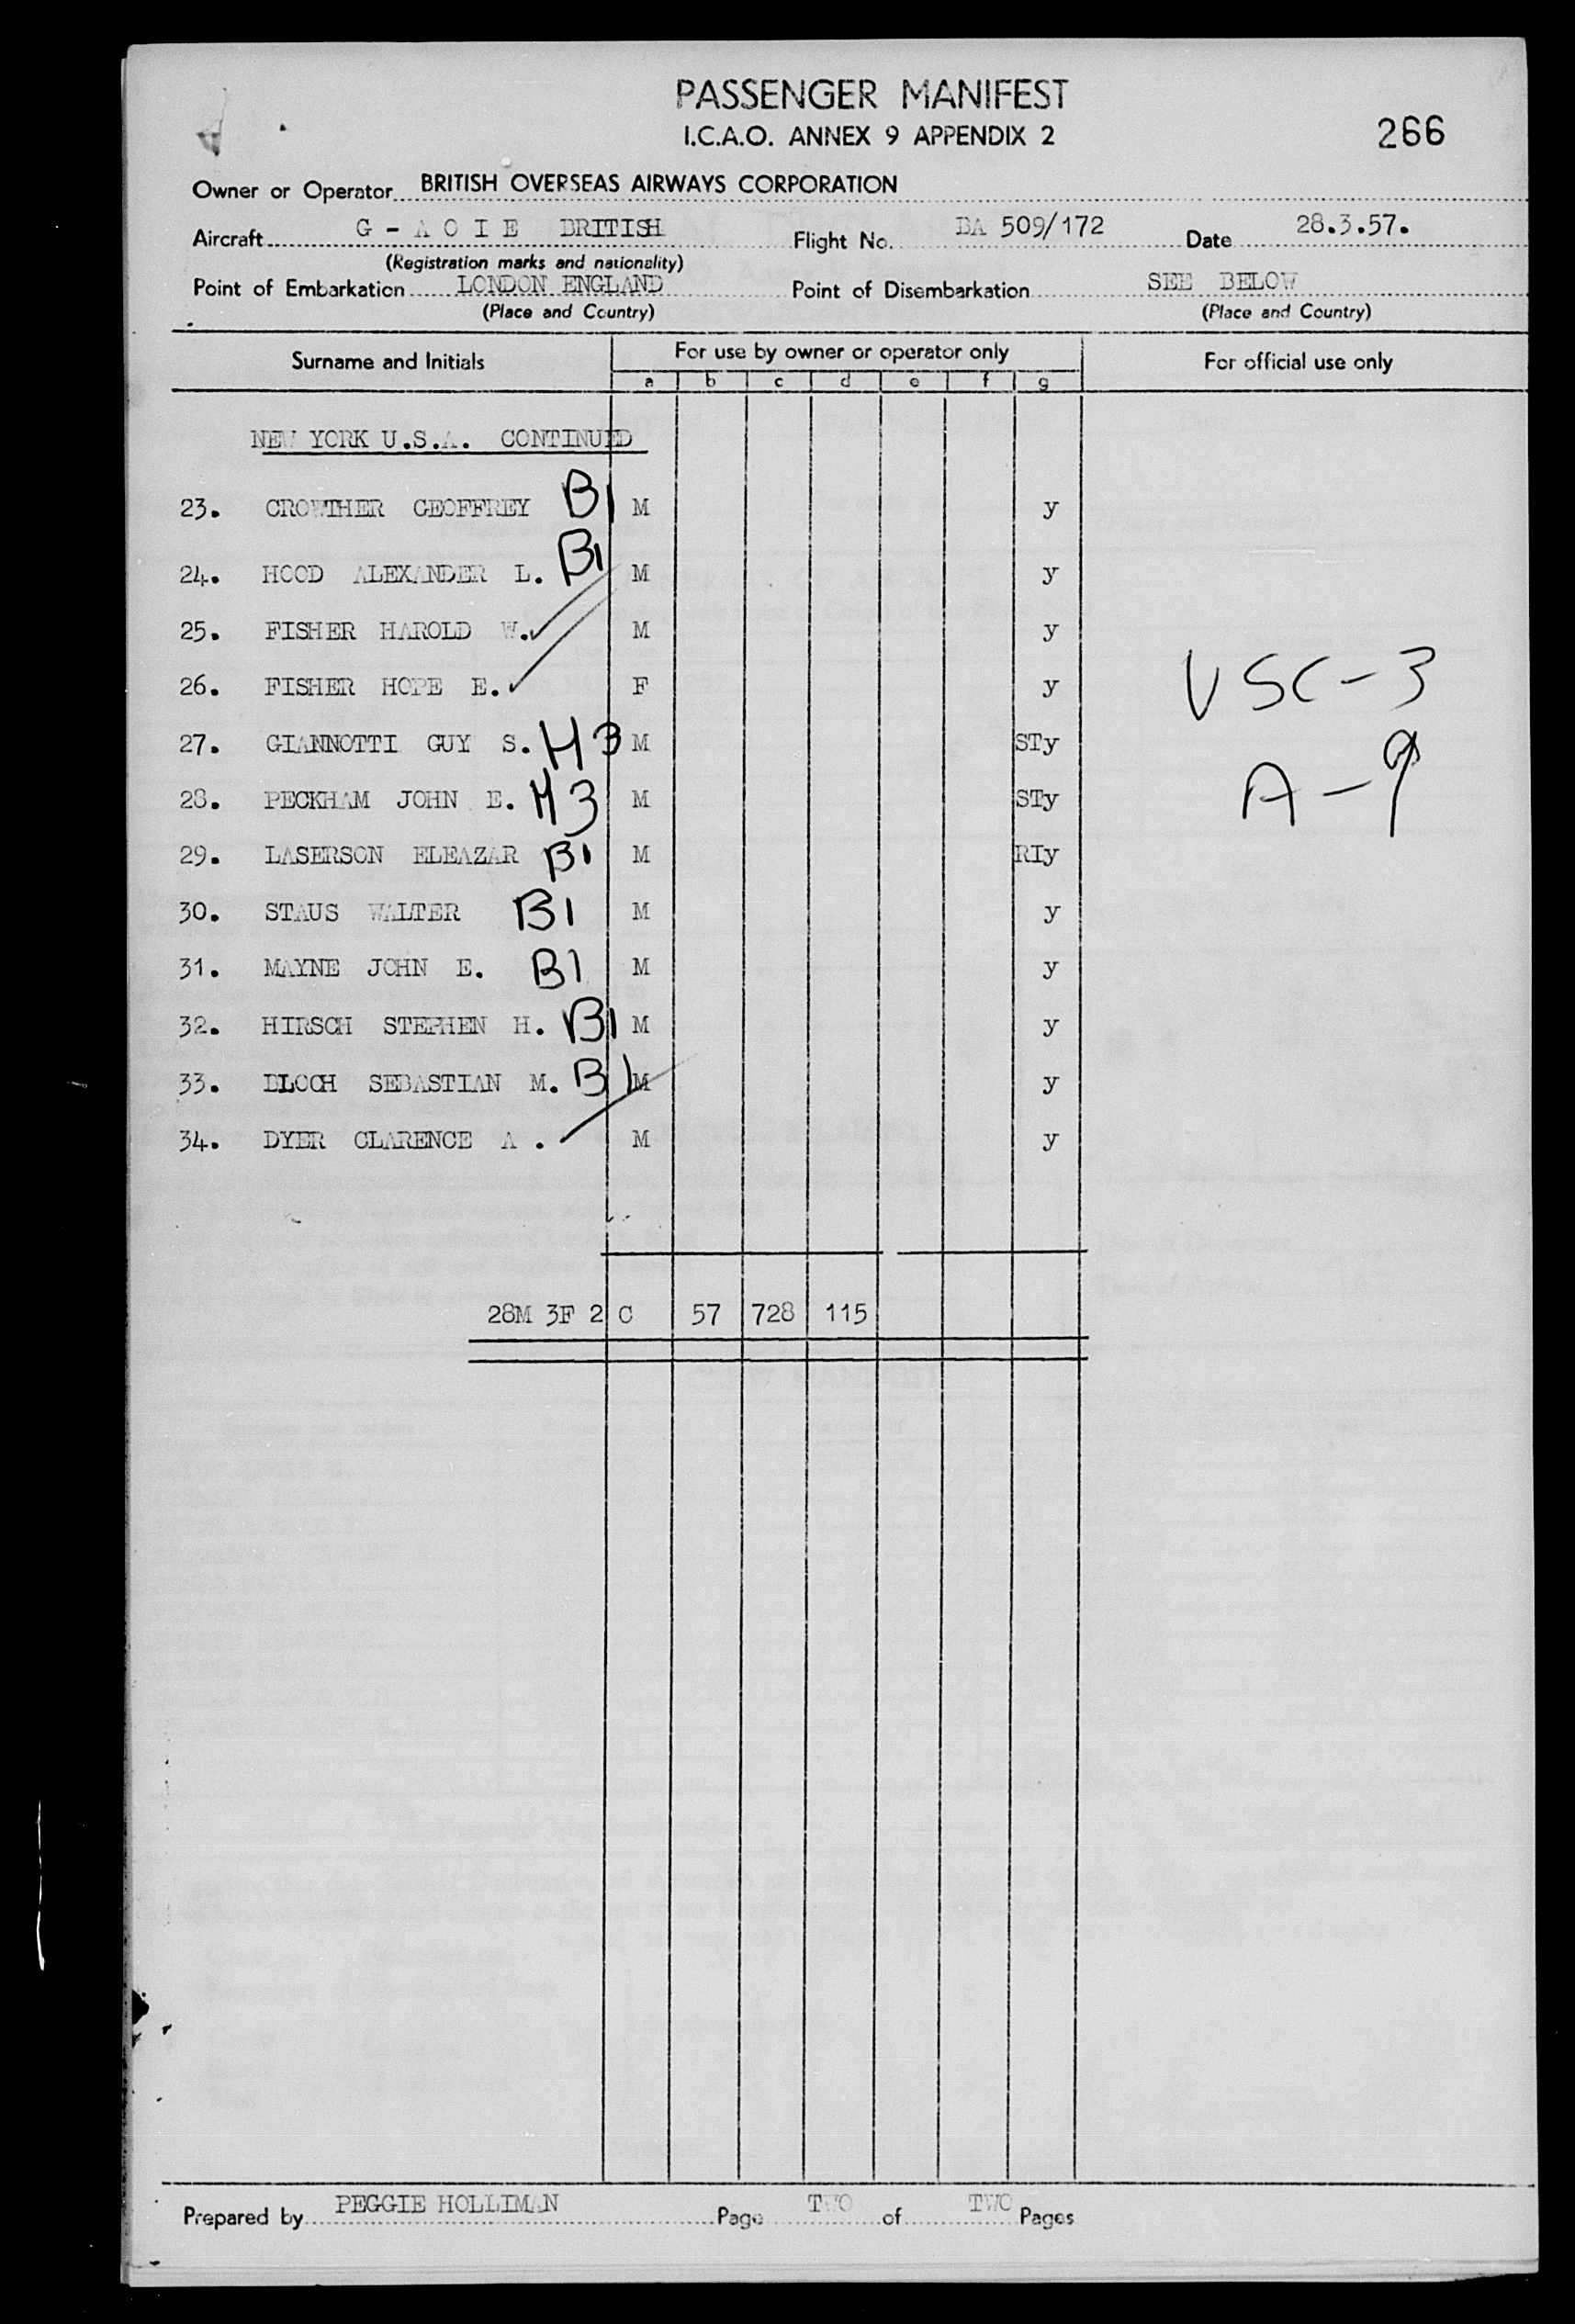 PASSENGER MANIFEST
I.C.A.O. ANNEX 9 APPENDIX 2
266
Owner or Operator BRITISH OVERSEAS AIRWAYS CORPORATION
Aircraft G - A O I E BRITISH Flight No. BA 509/172 Date 28.3.57.
(Registration marks and nationality)
Point of Embarkation LONDON ENGLAND Point of Disembarkation SEE BELOW
(Place and Country) (Place and Country)
Surname and Initials For use by owner or operator only For official use only
a b c d e f g
NEW YORK U.S.A. CONTINUED
23. CROWTHER GEOFFREY B1 M y
24. HOOD ALEXANDER L. B1 M y
25. FISHER HAROLD W. M y
26. FISHER HOPE E. F y
USC-3
27. GIANNOTTI GUY S. H3 M STy
A-9
28. PECKHAM JOHN E. H3 M STy
29. LASERSON ELEAZAR B1 M RIy
30. STAUS WALTER B1 M y
31. MAYNE JOHN E. B1 M y
32. HIRSCH STEPHEN H. B1 M y
33. BLOCH SEBASTIAN M. B1 M y
34. DYER CLARENCE A . M y
28M 3F 2 C 57 728 115
Prepared by PEGGIE HOLLIMAN Page TWO of TWO Pages